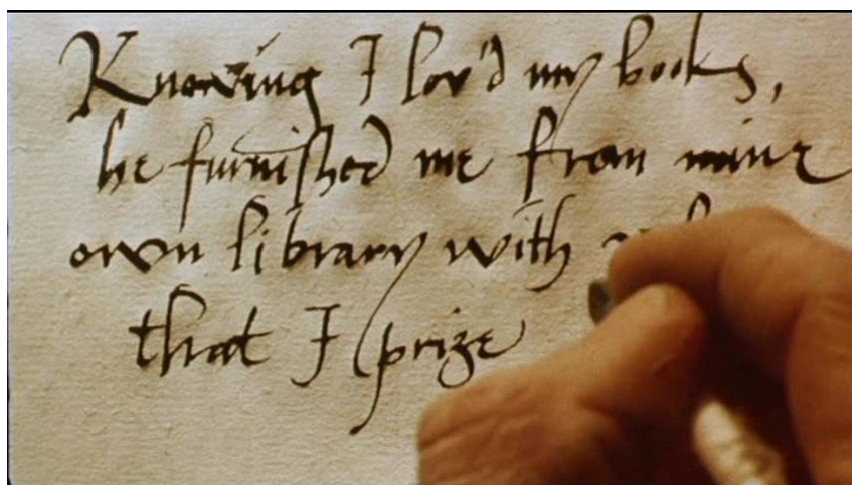 Knowing I lov'd my books,
he furnished me from mine
own library with
that I prize